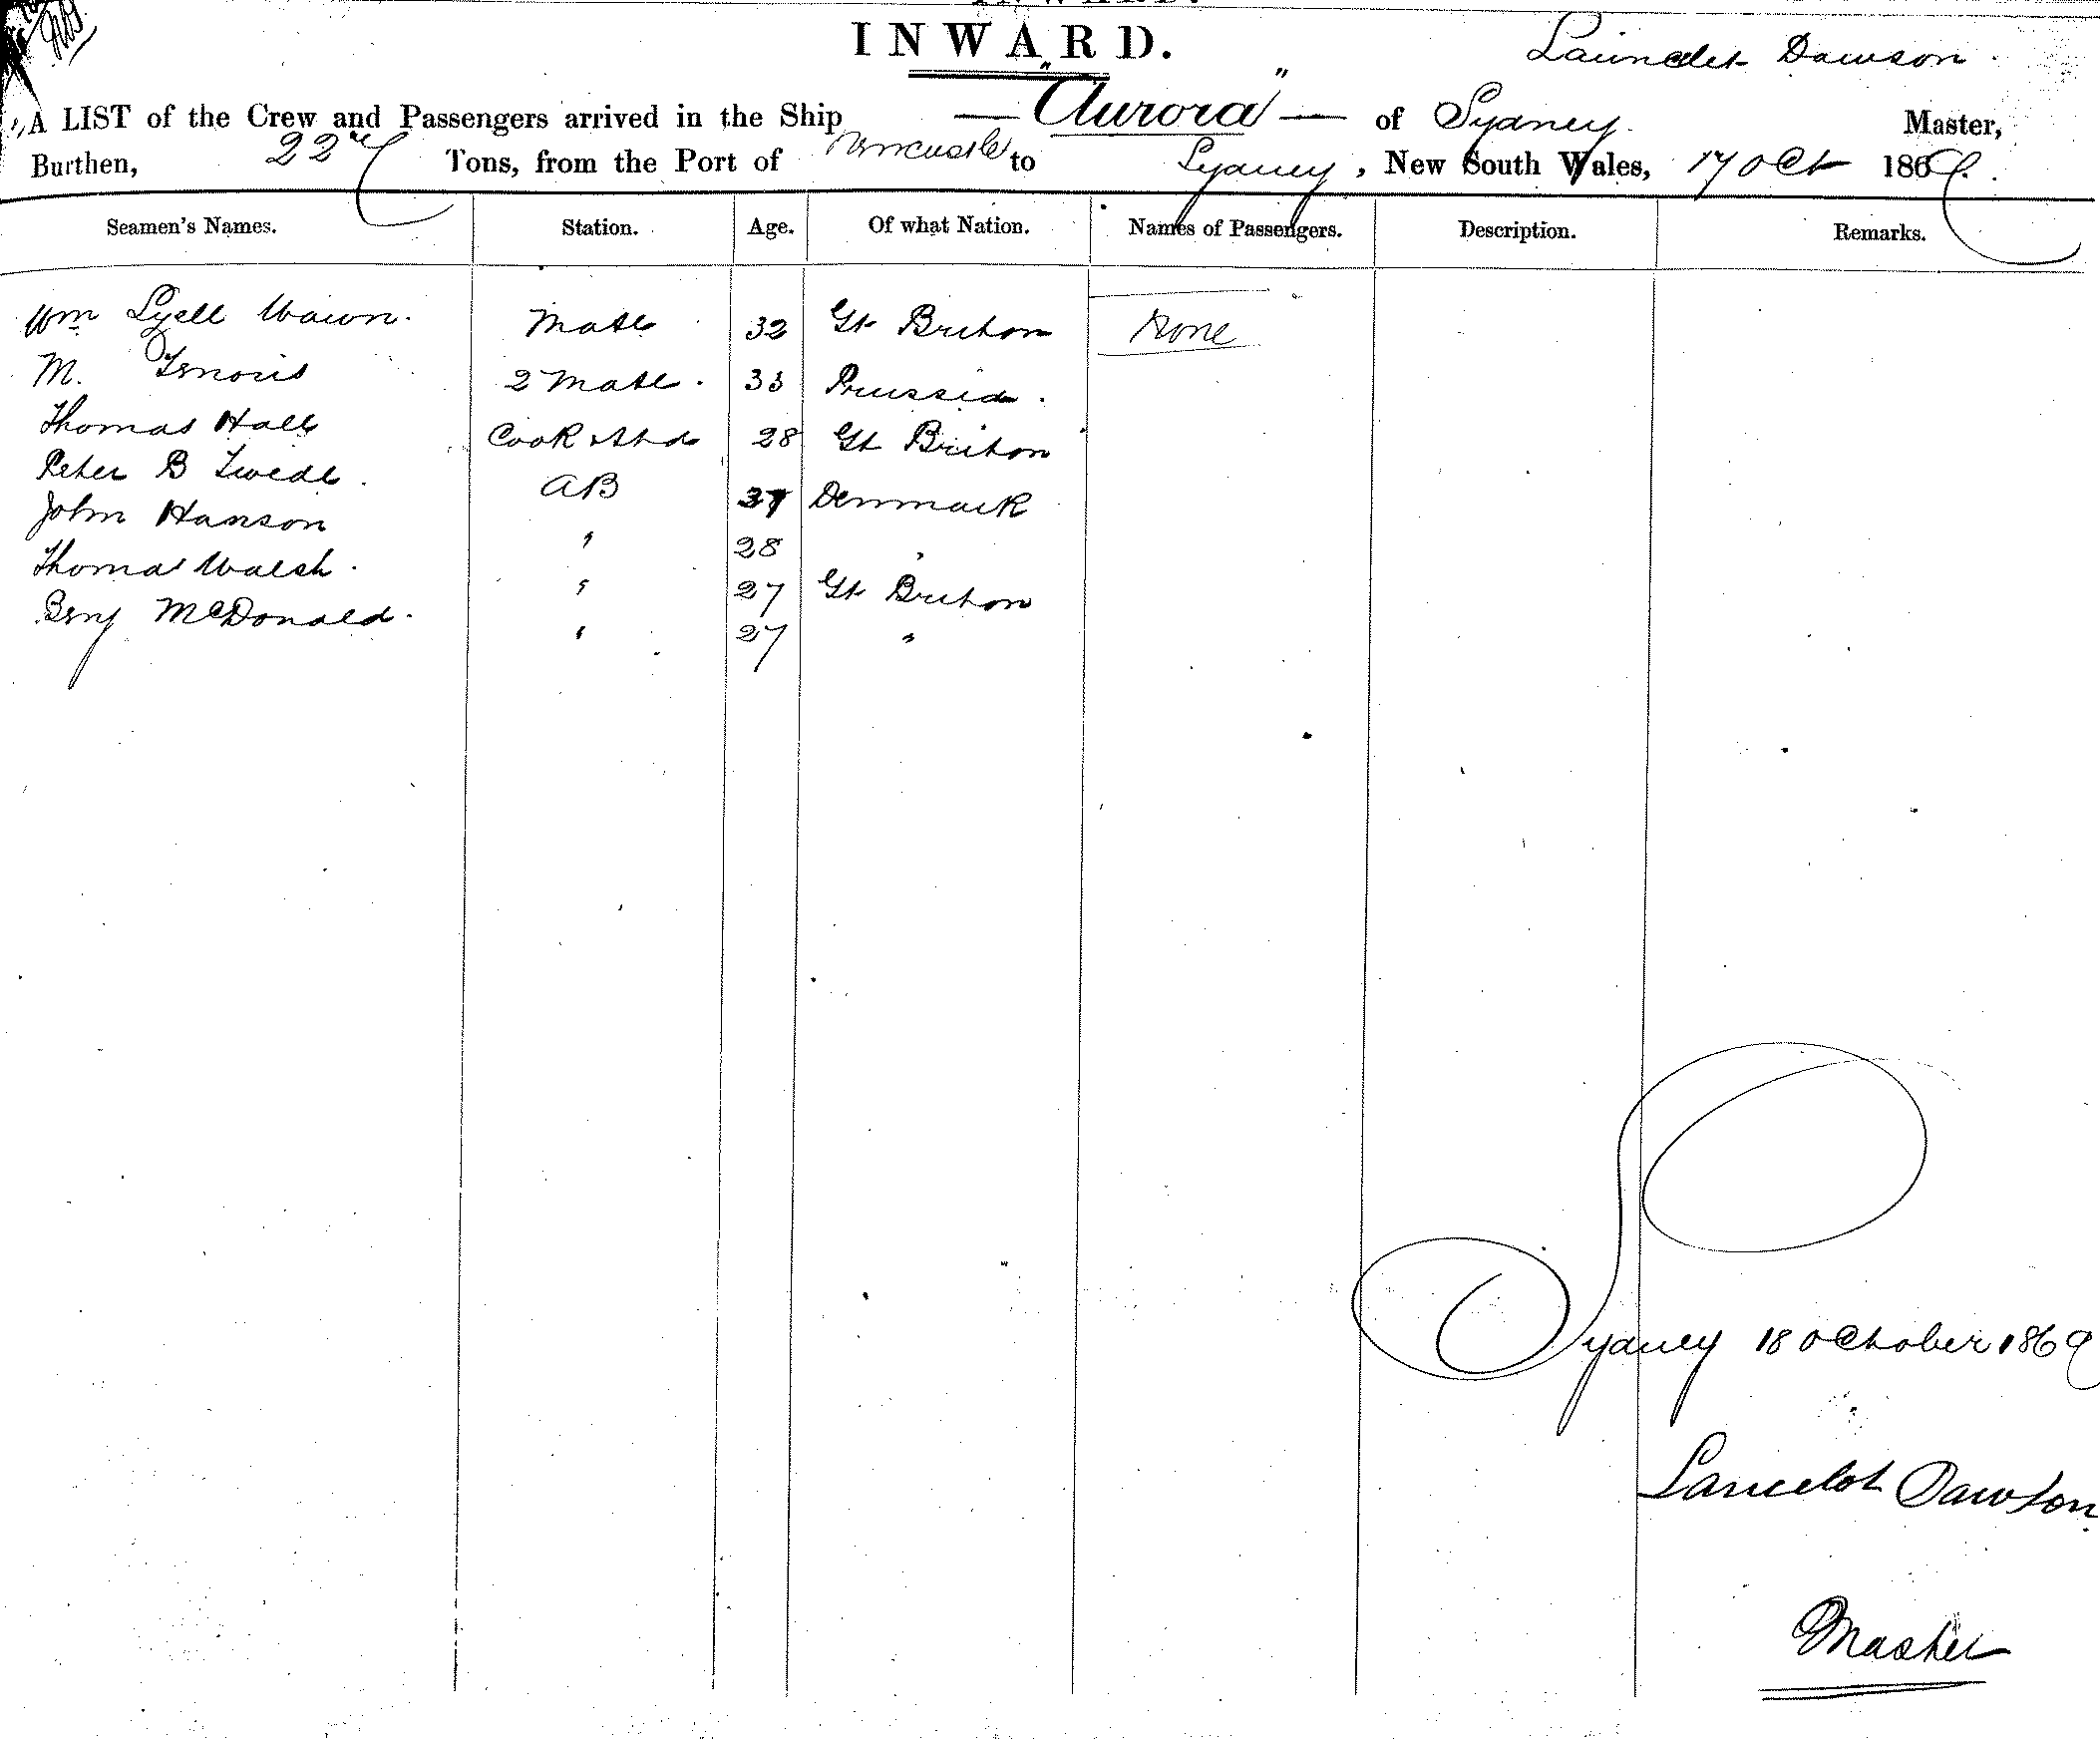 INWARD.
Launcelet Dawson
A LIST of the Crew and Passengers arrived in the Ship — "Aurora" — of Sydney. Master,
Burthen, Tons, from the Port of Newcastle to Sydney, New South Wales, 17 Oct 1869.
Seamen's Names. Station. Age. Of what Nation. Names of Passengers. Description. Remarks.
Wm Lyell Wawn. Mate 32 Gt Briton None
M. 2 Mate. 33 Prussia.
Thomas Hall Cook & Std 28 Gt Briton
Peter B Twede. AB 37 Denmark
John Hanson " 28 "
Thomas Walsh. " 27 Gt Briton
Benj McDonald. " 27 "
Sydney 18 October 1869
Lancelot Dawson
Master